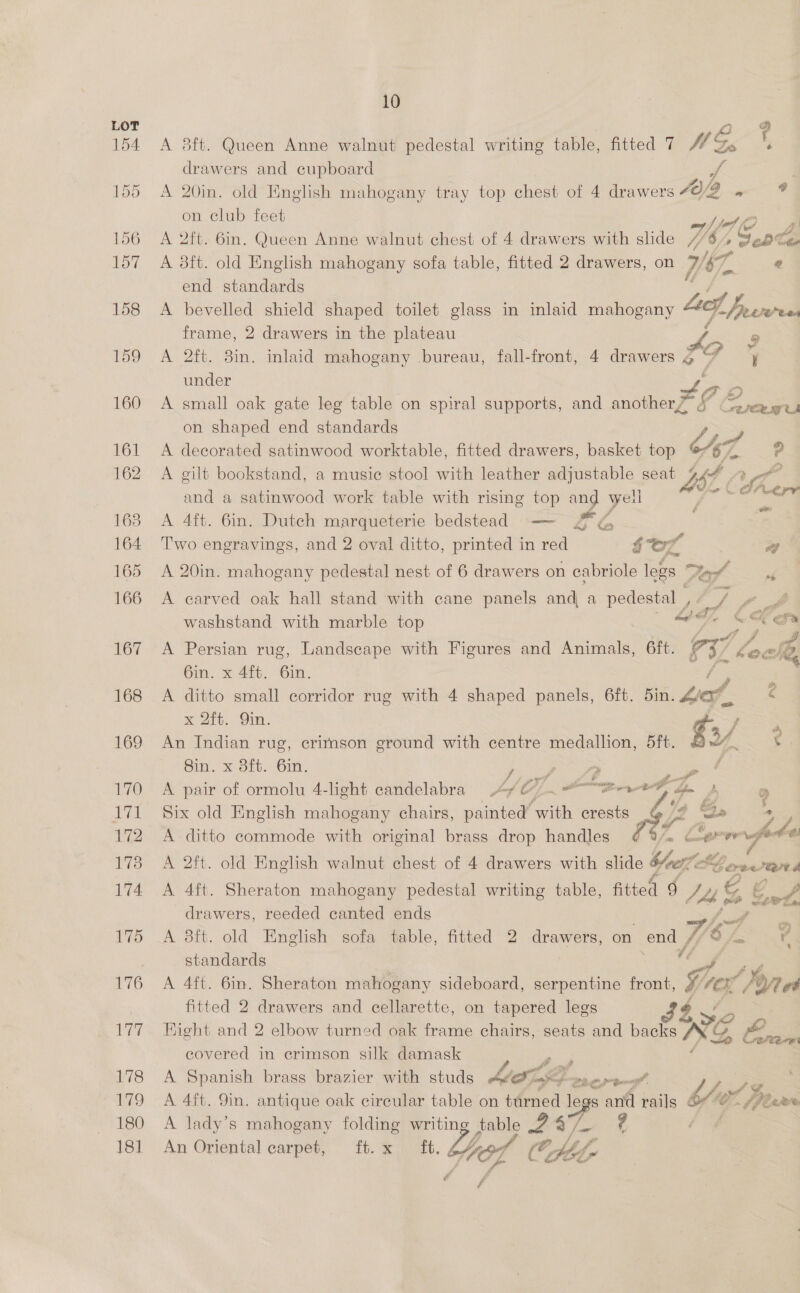 10
LOT
154 A 3ft. Queen Anne walnut pedestal writing table, fitted 7
drawers and cupboard
155 A 20in. old English mahogany tray top chest of 4 drawers
on club feet
156 A 2ft. 6in. Queen Anne walnut chest of 4 drawers with slide
157 A 3ft. old English mahogany sofa table, fitted 2 drawers, on
end standards
158 A bevelled shield shaped toilet glass in inlaid mahogany
frame, 2 drawers in the plateau
159 A 2ft. 3in. inlaid mahogany bureau, fall-front, 4 drawers
under
160 A small oak gate leg table on spiral supports, and another
on shaped end standards
161 A decorated satinwood worktable, fitted drawers, basket top
162 A gilt bookstand, a music stool with leather adjustable seat
and a satinwood work table with rising top and well
163 A 4ft. 6in. Dutch marqueterie bedstead —
164 Two engravings, and 2 oval ditto, printed in red
165 A 20in. mahogany pedestal nest of 6 drawers on cabriole legs
166 A carved oak hall stand with cane panels and a pedestal
washstand with marble top
167 A Persian rug, Landscape with Figures and Animals, 6ft.
6in. x 4ft. 6in.
168 A ditto small corridor rug with 4 shaped panels, 6ft. 5in.
x 2ft. 9in.
169 An Indian rug, crimson ground with centre medallion, 5ft.
8in. x 3ft. 6in.
170 A pair of ormolu 4-light candelabra
171 Six old English mahogany chairs, painted with crests
172 A ditto commode with original brass drop handles
173 A 2ft. old English walnut chest of 4 drawers with slide
174 A 4ft. Sheraton mahogany pedestal writing table, fitted 9
drawers, reeded canted ends
175 A 3ft. old English sofa table, fitted 2 drawers, on end
standards
176 A 4ft. 6in. Sheraton mahogany sideboard, serpentine front,
fitted 2 drawers and cellarette, on tapered legs
177 Eight and 2 elbow turned oak frame chairs, seats and backs
covered in crimson silk damask
178 A Spanish brass brazier with studs
179 A 4ft. 9in. antique oak circular table on turned legs and rails
180 A lady's mahogany folding writing table
181 An Oriental carpet, ft. x ft.